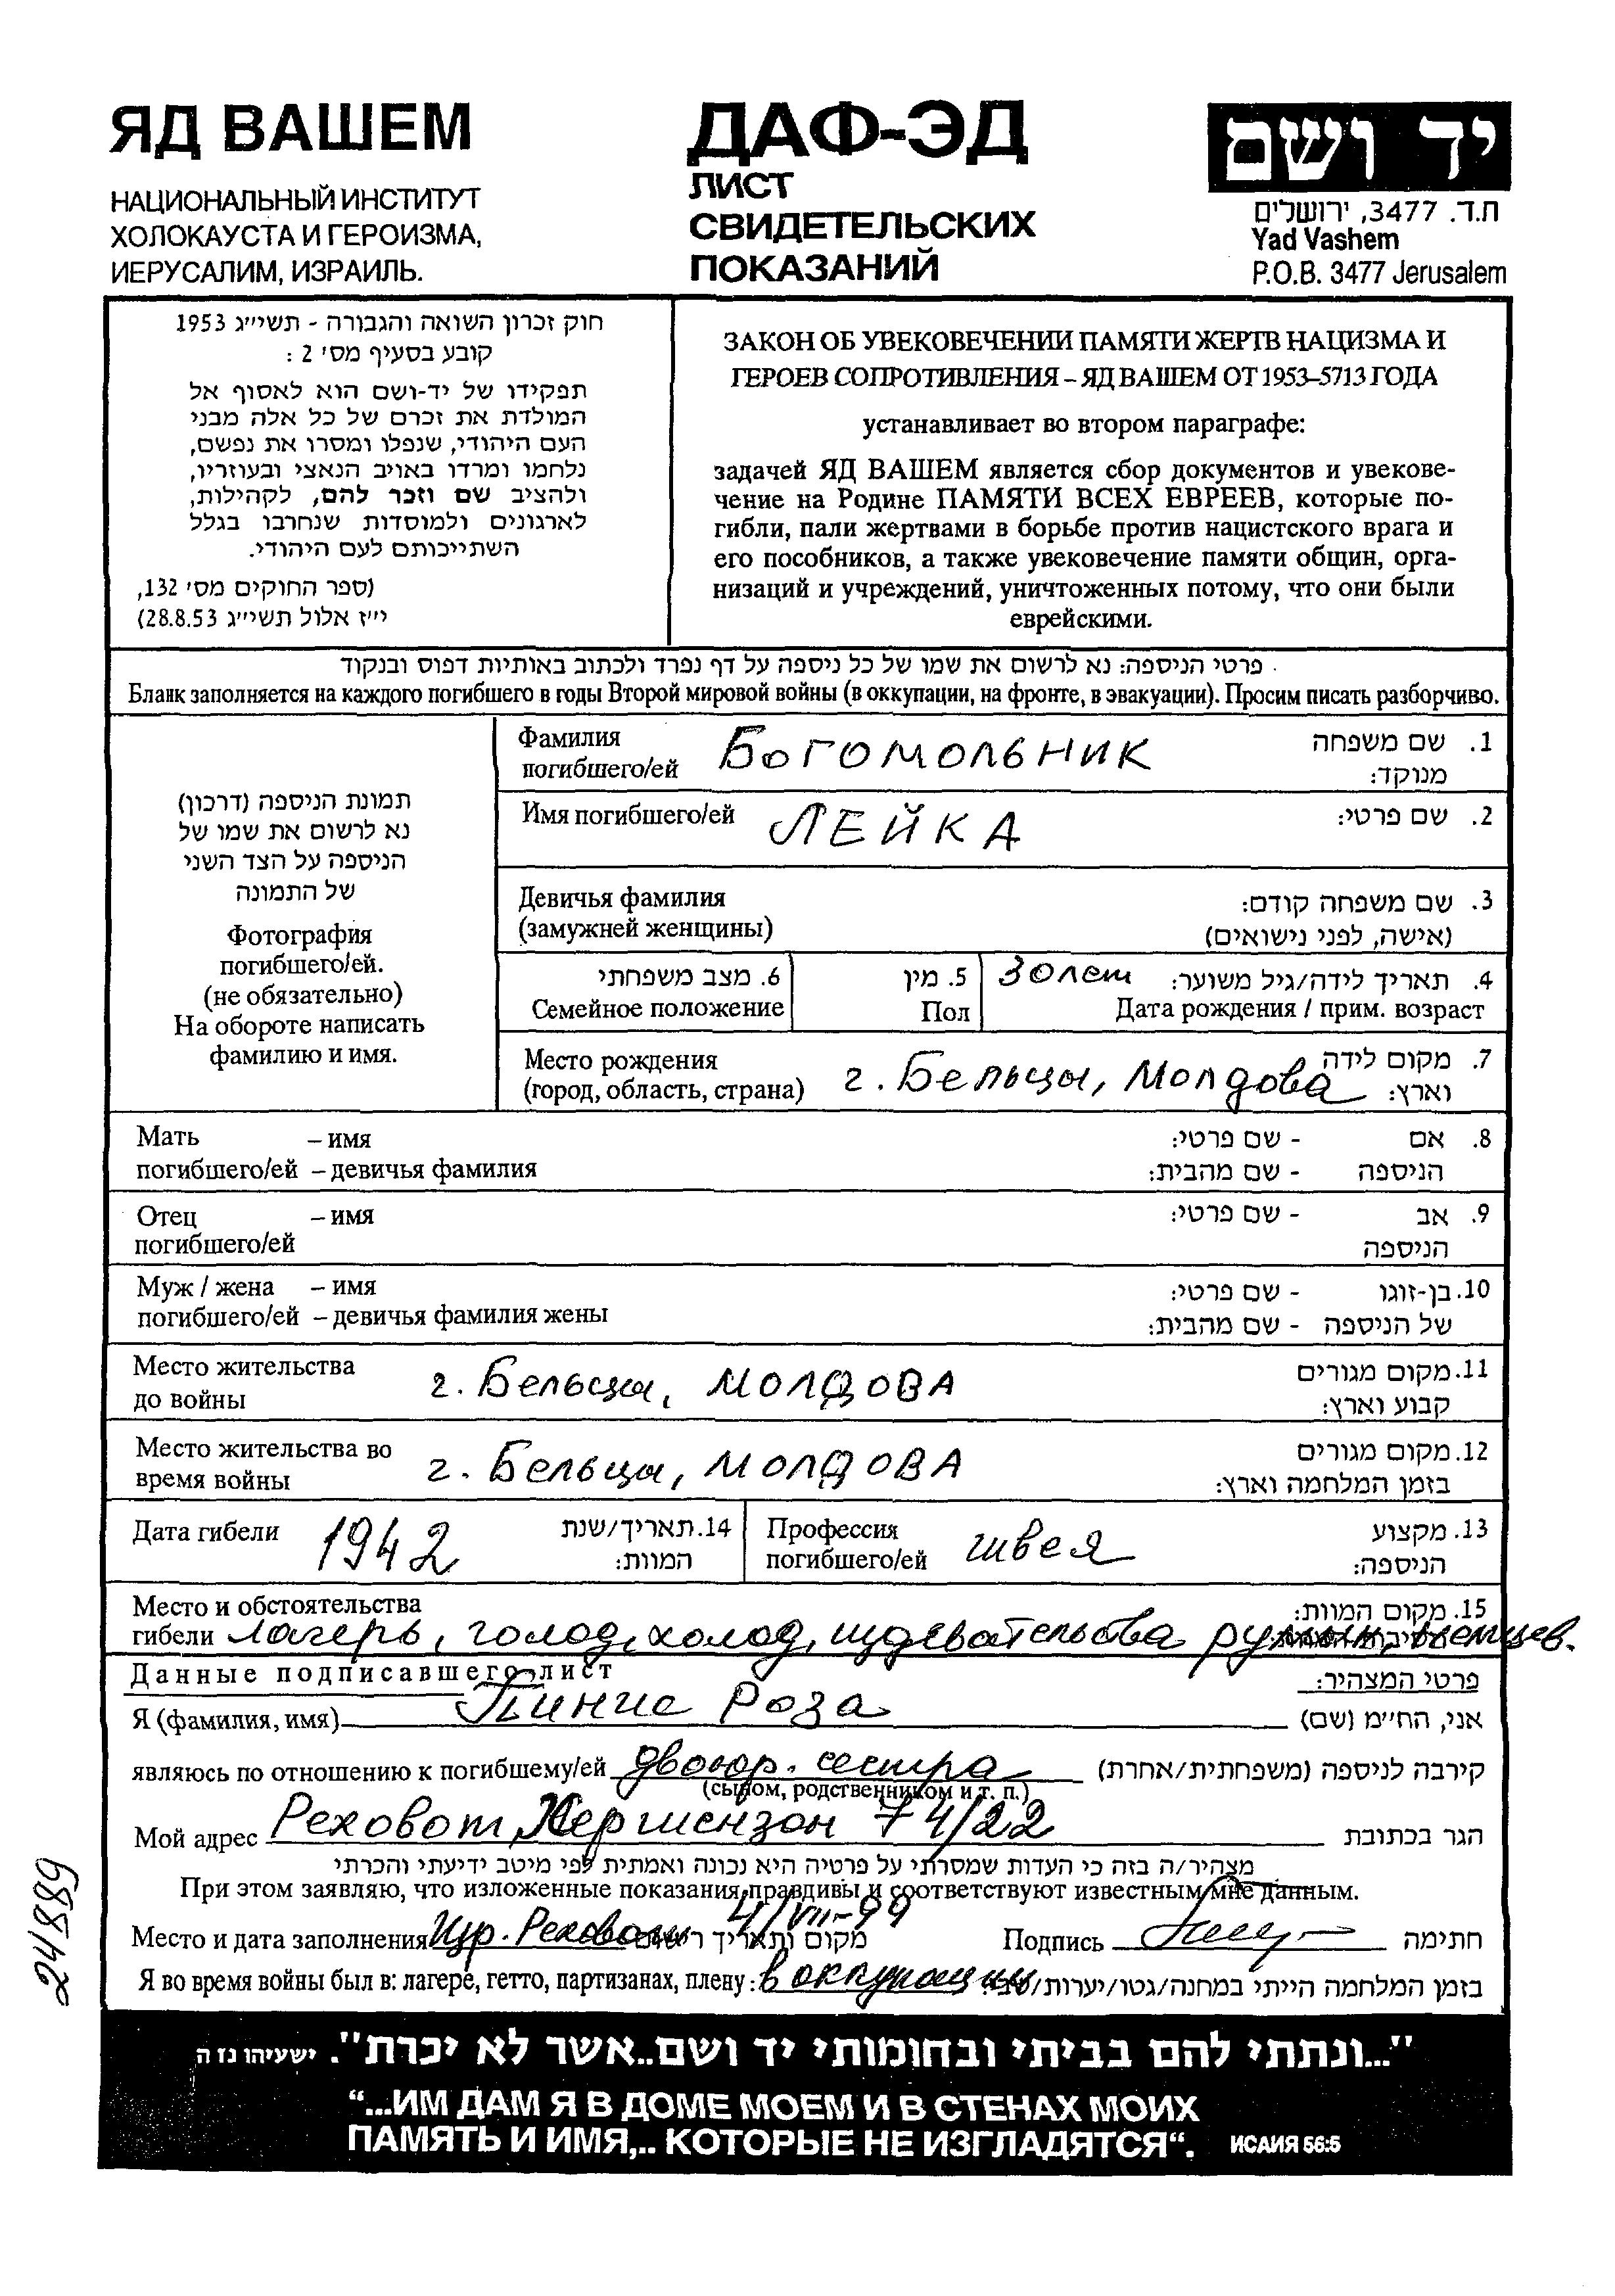 ЯД ВАШЕМ
НАЦИОНАЛЬНЫЙ ИНСТИТУТ
ХОЛОКАУСТА И ГЕРОИЗМА,
ИЕРУСАЛИМ, ИЗРАИЛЬ.
ДАФ-ЭД
ЛИСТ
СВИДЕТЕЛЬСКИХ
ПОКАЗАНИЙ
יד ושם
ת.ד. 3477, ירושלים
Yad Vashem
P.O.B. 3477 Jerusalem
חוק זכרון השואה והגבורה - תשי״ג 1953
קובע בסעיף מס׳ 2 :
תפקידו של יד-ושם הוא לאסוף אל
המולדת את זכרם של כל אלה מבני
העם היהודי, שנפלו ומסרו את נפשם,
נלחמו ומרדו באויב הנאצי ובעוזריו,
ולהציב שם וזכר להם, לקהילות,
לארגונים ולמוסדות שנחרבו בגלל
השתייכותם לעם היהודי.
(ספר החוקים מס׳ 132,
י״ז אלול תשי״ג 28.8.53)
ЗАКОН ОБ УВЕКОВЕЧЕНИИ ПАМЯТИ ЖЕРТВ НАЦИЗМА И
ГЕРОЕВ СОПРОТИВЛЕНИЯ – ЯД ВАШЕМ ОТ 1953–5713 ГОДА
устанавливает во втором параграфе:
задачей ЯД ВАШЕМ является сбор документов и увекове-
чение на Родине ПАМЯТИ ВСЕХ ЕВРЕЕВ, которые по-
гибли, пали жертвами в борьбе против нацистского врага и
его пособников, а также увековечение памяти общин, орга-
низаций и учреждений, уничтоженных потому, что они были
еврейскими.
פרטי הניספה: נא לרשום את שמו של כל ניספה על דף נפרד ולכתוב באותיות דפוס ובנקוד
Бланк заполняется на каждого погибшего в годы Второй мировой войны (в оккупации, на фронте, в эвакуации). Просим писать разборчиво.
תמונת הניספה (דרכון)
נא לרשום את שמו של
הניספה על הצד השני
של התמונה
Фотография
погибшего/ей.
(не обязательно)
На обороте написать
фамилию и имя.
Фамилия БОГОМОЛЬНИК 1. שם משפחה
погибшего/ей מנוקד:
Имя погибшего/ей ЛЕЙКА 2. שם פרטי:
Девичья фамилия 3. שם משפחה קודם:
(замужней женщины) (אישה, לפני נישואים)
6. מצב משפחתי 5. מין 30 лет 4. תאריך לידה/גיל משוער:
Семейное положение Пол Дата рождения / прим. возраст
Место рождения 7. מקום לידה
(город, область, страна) г. Бельцы, Молдова וארץ:
Мать – имя 8. אם - שם פרטי:
погибшего/ей – девичья фамилия הניספה - שם מהבית:
Отец – имя 9. אב - שם פרטי:
погибшего/ей הניספה
Муж / жена – имя 10. בן-זוגו - שם פרטי:
погибшего/ей – девичья фамилия жены של הניספה - שם מהבית:
Место жительства 11. מקום מגורים
до войны г. Бельцы, МОЛДОВА קבוע וארץ:
Место жительства во 12. מקום מגורים
время войны г. Бельцы, МОЛДОВА בזמן המלחמה וארץ:
Дата гибели 1942 14. תאריך/שנת Профессия швея 13. מקצוע
המוות: погибшего/ей הניספה:
Место и обстоятельства 15. מקום המוות:
гибели лагерь, голод, холод, издевательства румын, немцев.
Данные подписавшего лист פרטי המצהיר:
Я (фамилия, имя) Пинис Роза אני, הח״מ (שם)
являюсь по отношению к погибшему/ей двоюр. сестра קירבה לניספה (משפחתית/אחרת)
(сыном, родственником и т. п.)
Мой адрес Реховот, Хершензон 74/22 הגר בכתובת
מצהיר/ה בזה כי העדות שמסרתי על פרטיה היא נכונה ואמתית לפי מיטב ידיעתי והכרתי
При этом заявляю, что изложенные показания правдивы и соответствуют известным мне данным.
Место и дата заполнения Изр. Реховот 4/VII-99 מקום ותאריך Подпись חתימה
Я во время войны был в: лагере, гетто, партизанах, плену: в оккупации בזמן המלחמה הייתי במחנה/גטו/יערות/
24889
"...ונתתי להם בביתי ובחומותי יד ושם..אשר לא יכרת". ישעיהו נז ה
“...ИМ ДАМ Я В ДОМЕ МОЕМ И В СТЕНАХ МОИХ
ПАМЯТЬ И ИМЯ,.. КОТОРЫЕ НЕ ИЗГЛАДЯТСЯ“. ИСАИЯ 56:5